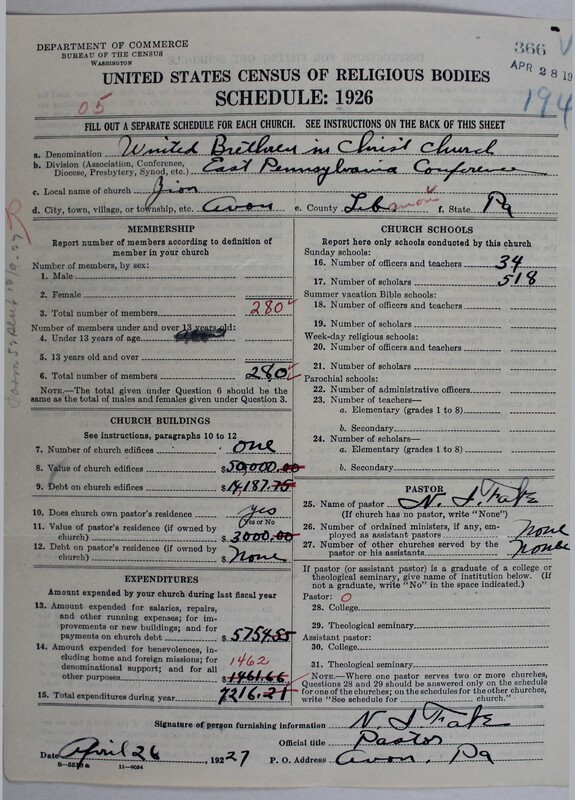 DEPARTMENT OF COMMERCE
BUREAU OF THE CENSUS
WASHINGTON
366
APR 28 19
194
UNITED STATES CENSUS OF RELIGIOUS BODIES
SCHEDULE: 1926
05
FILL OUT A SEPARATE SCHEDULE FOR EACH CHURCH. SEE INSTRUCTIONS ON THE BACK OF THIS SHEET
a. Denomination United Brethren in Christ Church
b. Division (Association, Conference, Diocese, Presbytery, Synod, etc.) East Pennsylvania Conference
c. Local name of church Zion
d. City, town, village, or township, etc. Avon e. County Leb f. State Pa
MEMBERSHIP
Report number of members according to definition of
member in your church
Number of members, by sex:
1. Male
2. Female
3. Total number of members 280
Number of members under and over 13 years old:
4. Under 13 years of age
5. 13 years old and over
6. Total number of members 280
NOTE.—The total given under Question 6 should be
same as the total of males and females given under Question 3.
CHURCH BUILDINGS
See instructions, paragraphs 10 to 12
7. Number of church edifices one
8. Value of church edifices $50,000.00
9. Debt on church edifices $14,187.75
10. Does church own pastor's residence? yes
Yes or No
11. Value of pastor's residence (if owned by
church) $3000.00
12. Debt on pastor's residence (if owned by
church) $None
EXPENDITURES
Amount expended by your church during last fiscal year
13. Amount expended for salaries, repairs,
and other running expenses; for im-
provements or new buildings; and for
payments on church debt $5754.55
14. Amount expended for benevolences, in-
cluding home and foreign missions; for
denominational support; and for all
other purposes $1461.66
1462
15. Total expenditures during year 7216.21
CHURCH SCHOOLS
Report here only schools conducted by this church
Sunday schools:
16. Number of officers and teachers 34
17. Number of scholars 518
Summer vacation Bible schools:
18. Number of officers and teachers
19. Number of scholars
Week-day religious schools:
20. Number of officers and teachers
21. Number of scholars
Parochial schools:
22. Number of administrative officers
23. Number of teachers—
a. Elementary (grades 1 to 8)
b. Secondary
24. Number of scholars—
a. Elementary (grades 1 to 8)
b. Secondary
PASTOR
25. Name of pastor N. I.
(If church has no pastor, write "None")
26. Number of ordained ministers, if any, em-
ployed as assistant pastors none
27. Number of other churches served by the
pastor or his assistants none
If pastor (or assistant pastor) is a graduate of a college or
theological seminary, give name of institution below. (If
not a graduate, write "No" in the space indicated.)
Pastor: 0
28. College
29. Theological seminary
Assistant pastor:
30. College
31. Theological seminary
NOTE.—Where one pastor serves two or more churches,
Questions 28 and 29 should be answered only on the schedule
for one of the churches; on the schedules for the other churches,
write "See schedule for church."
Signature of person furnishing information N. I.
Official title Pastor
Date April 26, 1927 P. O. Address Avon, Pa
11—9054